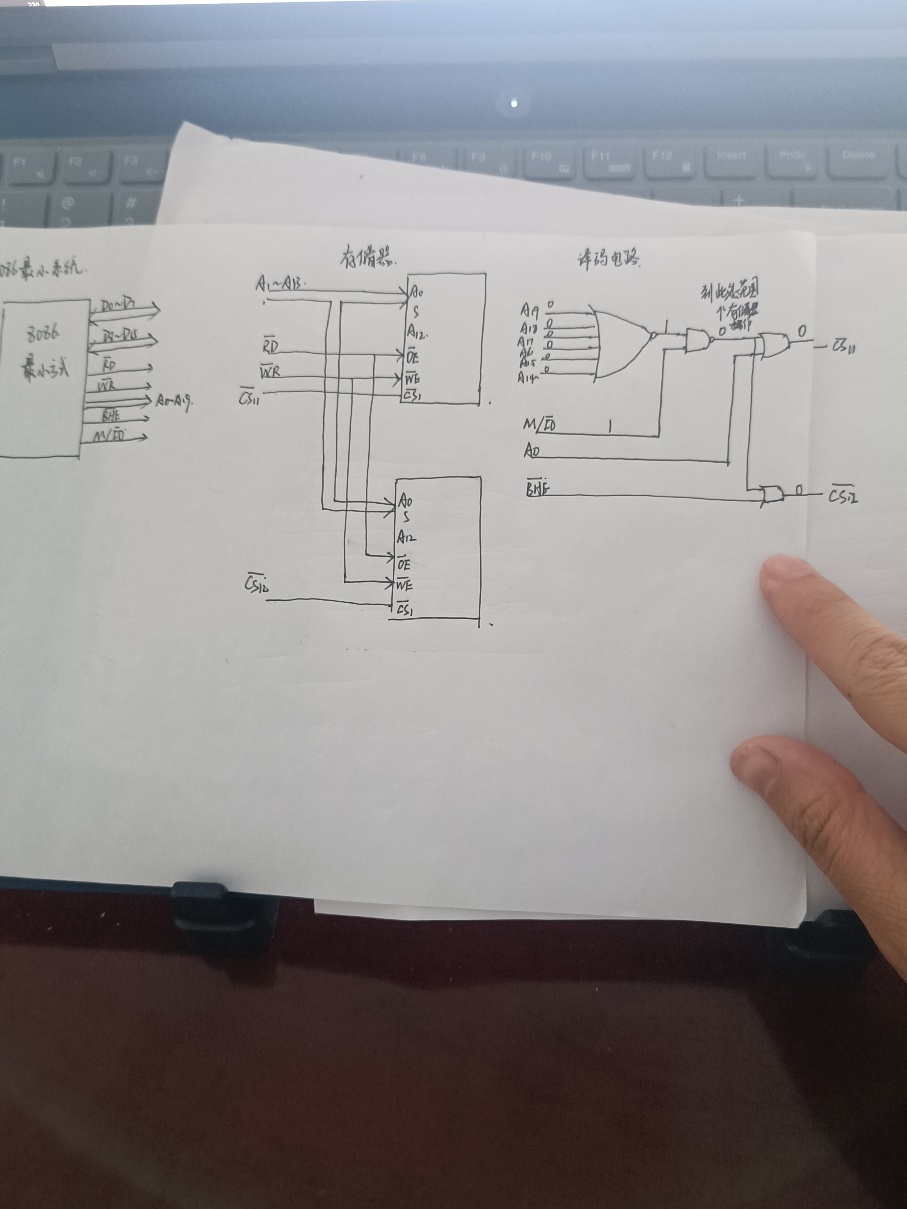 F1 F2 F3 F8 F9 F10 F11 F12 Insert PrtSc Delete
! @ #
2
+
086最小系统.
8086
最小方式
D0~D7
D8~D15
R̅D̅
W̅R̅
A0~A19.
B̅H̅E̅
M/I̅O̅
存储器.
A1~A13.
R̅D̅
W̅R̅
C̅S̅11
A0
S
A12.
O̅E̅
W̅E̅
C̅S̅1
C̅S̅12
A0
S
A12
O̅E̅
W̅E̅
C̅S̅1
译码电路.
A19 0
A18 0
A17 0
A16 0
A15 0
A14 0
1
0
个存储器
操作
0
C̅S̅11
M/I̅O̅ 1
A0
B̅H̅E̅
0
C̅S̅12